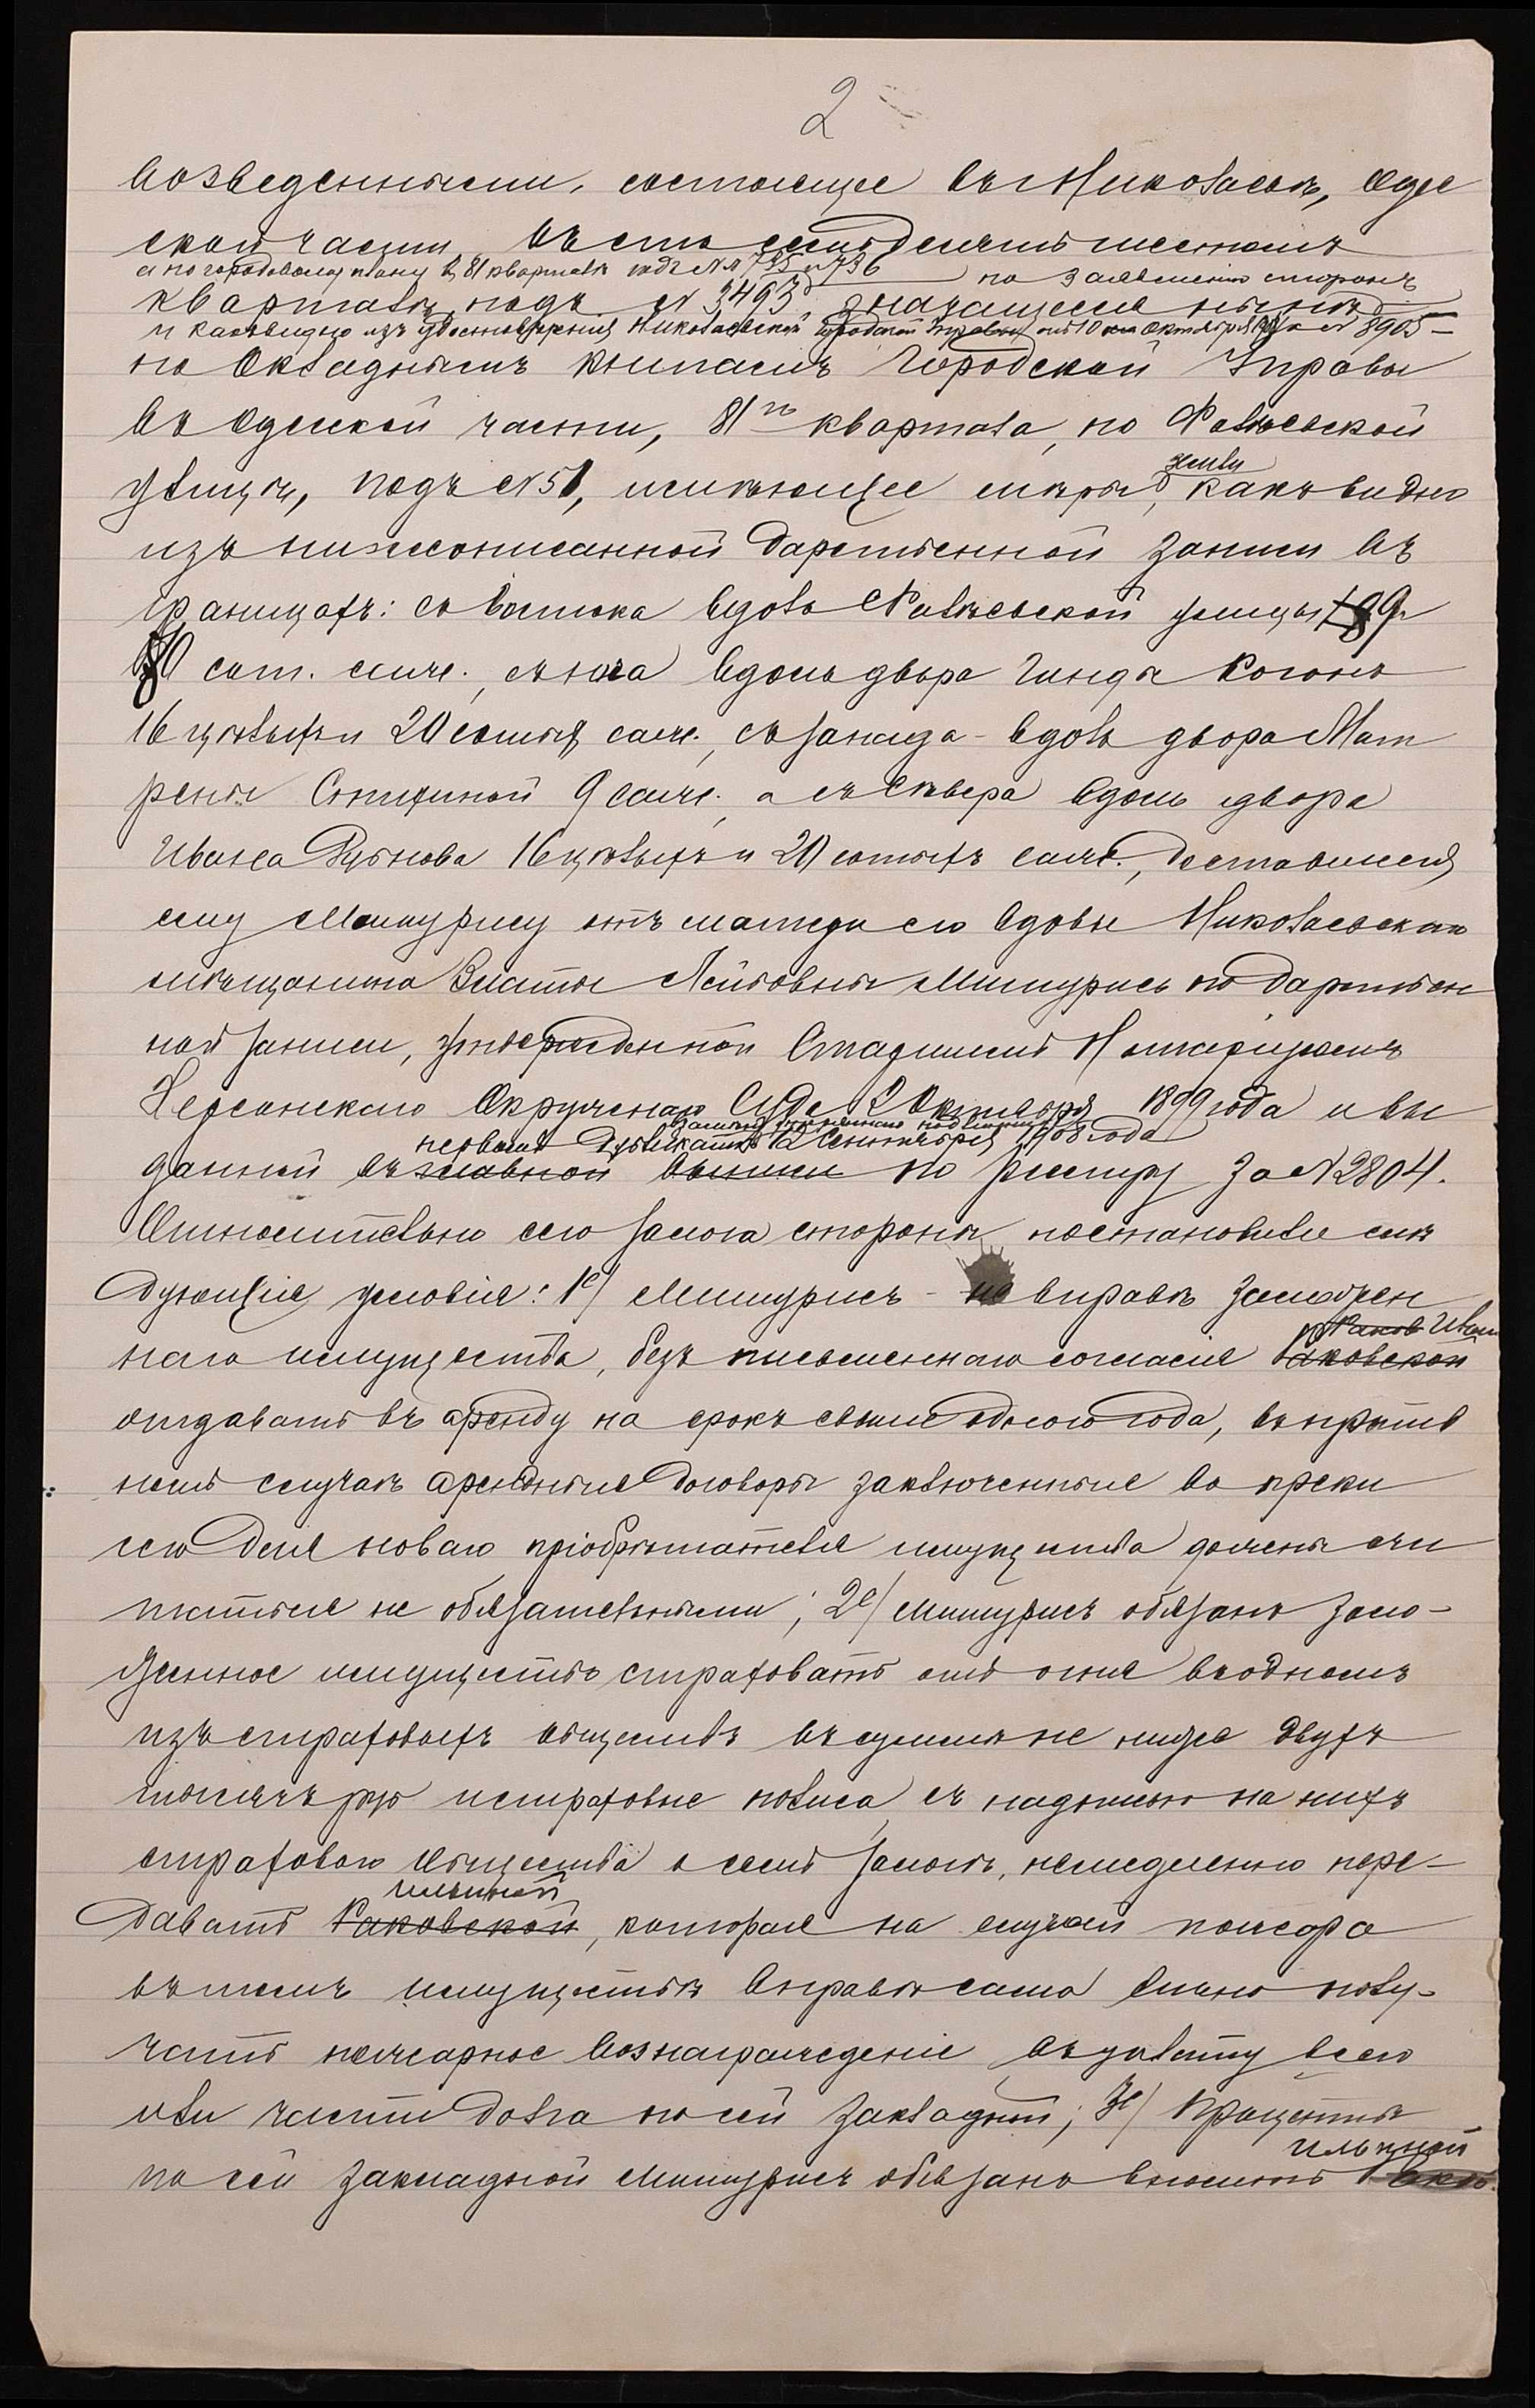 2
возведенными, состоящее въ Николаевѣ, Одес
ской части, въ сто семьдесятъ шестомъ
а по городовому плану въ 81 кварталѣ подъ №№ 735 и 736 по заявленію сторонъ
кварталѣ подъ № 3493 значащееся нынѣ
и какъ видно изъ удостовѣренія Николаевской Городской Управы отъ 10го Октября за № 8905
по Окладнымъ книгамъ Городской Управы
въ Одесской части, 81го квартала, по Фалѣевской
улицѣ, подъ № 51, имѣющее мѣры, земли какъ видно
изъ нижеописанной дарственной записи въ
границахъ: съ востока вдоль Фалѣевской улицы 9 и
80 сот. саж., съ юга вдоль двора Гинды Когонъ
16 цѣлыхъ и 20 сотыхъ саж., съ запада - вдоль двора Мат
рены 9 саж., а съ сѣвера вдоль двора
Ивана 16 цѣлыхъ и 20 сотыхъ саж., доставшееся
ему Мишурису отъ матери его вдовы Николаевскаго
мѣщанина Златы Лейбовны Мишурисъ по дарствен
ной записи, утвержденной Старшимъ Нотаріусомъ
Херсонскаго Окружнаго Суда 2 Октября 1899 года и вы
взамѣнъ утеряннаго подлинника
первымъ дубликатомъ 12 Сентября 1908 года
данной въ главной выписи по реестру за № 2804.
Относительно сего залога стороны постановили слѣ
дующія условія: 1е/ Мишурисъ - не вправѣ заложен
наго имущества, безъ письменнаго согласія Раковской
отдавать въ аренду на срокъ свыше одного года, въ против
номъ случаѣ арендные договоры заключенные во преки
сего для новаго пріобрѣтателя имущества должны счи
таться не обязательными; 2е/ Мишурисъ обязанъ зало-
женное имущество страховать отъ огня въ одномъ
изъ страховыхъ обществъ въ суммѣ не ниже двухъ
тысячъ руб и страховые полиса, съ надписью на нихъ
страхового общества о семъ залогѣ, немедленно пере-
ильиной
давать Раковской, которая на случай пожара
въ томъ имуществѣ вправѣ сама лично полу-
чать пожарное вознагражденіе въ уплату всего
или части долга по сей закладной; 3е/ Проценты
ильиной
по сей закладной Мишурисъ обязанъ вносить Рако